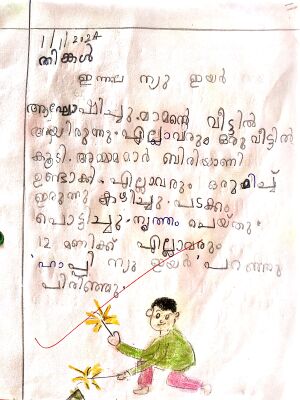 1/1/2024
തിങ്കൾ
ഇന്നലെ ന്യു ഇയർ
ആഘോഷിച്ചു. മാമന്റെ വീട്ടിൽ
ആയിരുന്നു. എല്ലാവരും ഒരു വീട്ടിൽ
കൂടി. അമ്മമാർ ബിരിയാണി
ഉണ്ടാക്കി. എല്ലാവരും ഒരുമിച്ച്
ഇരുന്നു കഴിച്ചു. പടക്കം
പൊട്ടിച്ചു. നൃത്തം ചെയ്തു.
12 മണിക്ക് എല്ലാവരും
'ഹാപ്പി ന്യു ഇയർ' പറഞ്ഞു
പിരിഞ്ഞു.